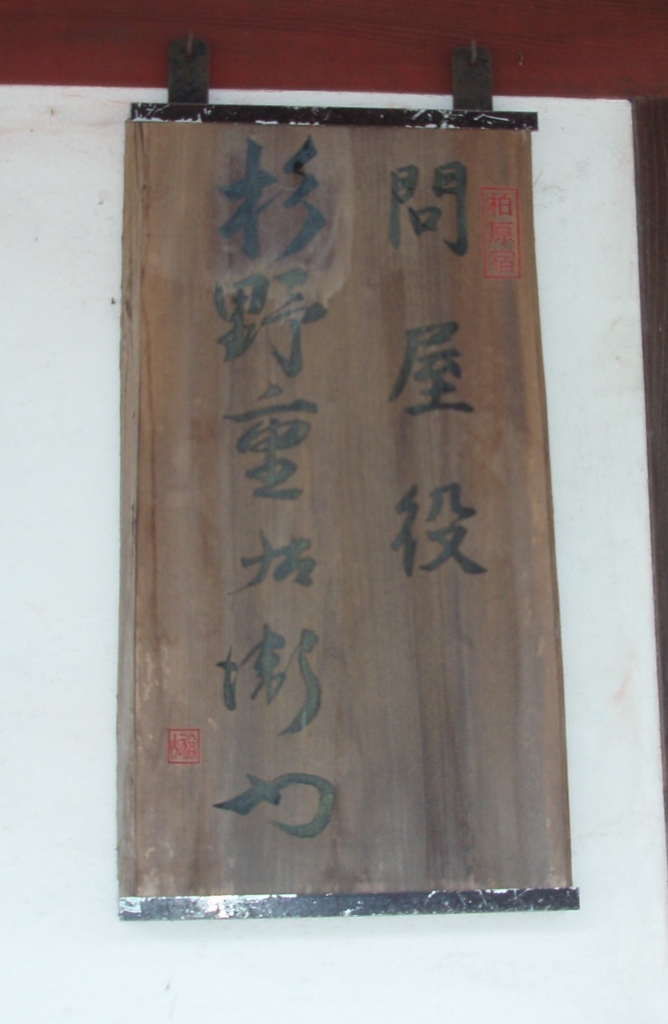 柏原宿
問屋役
杉野重右衛門